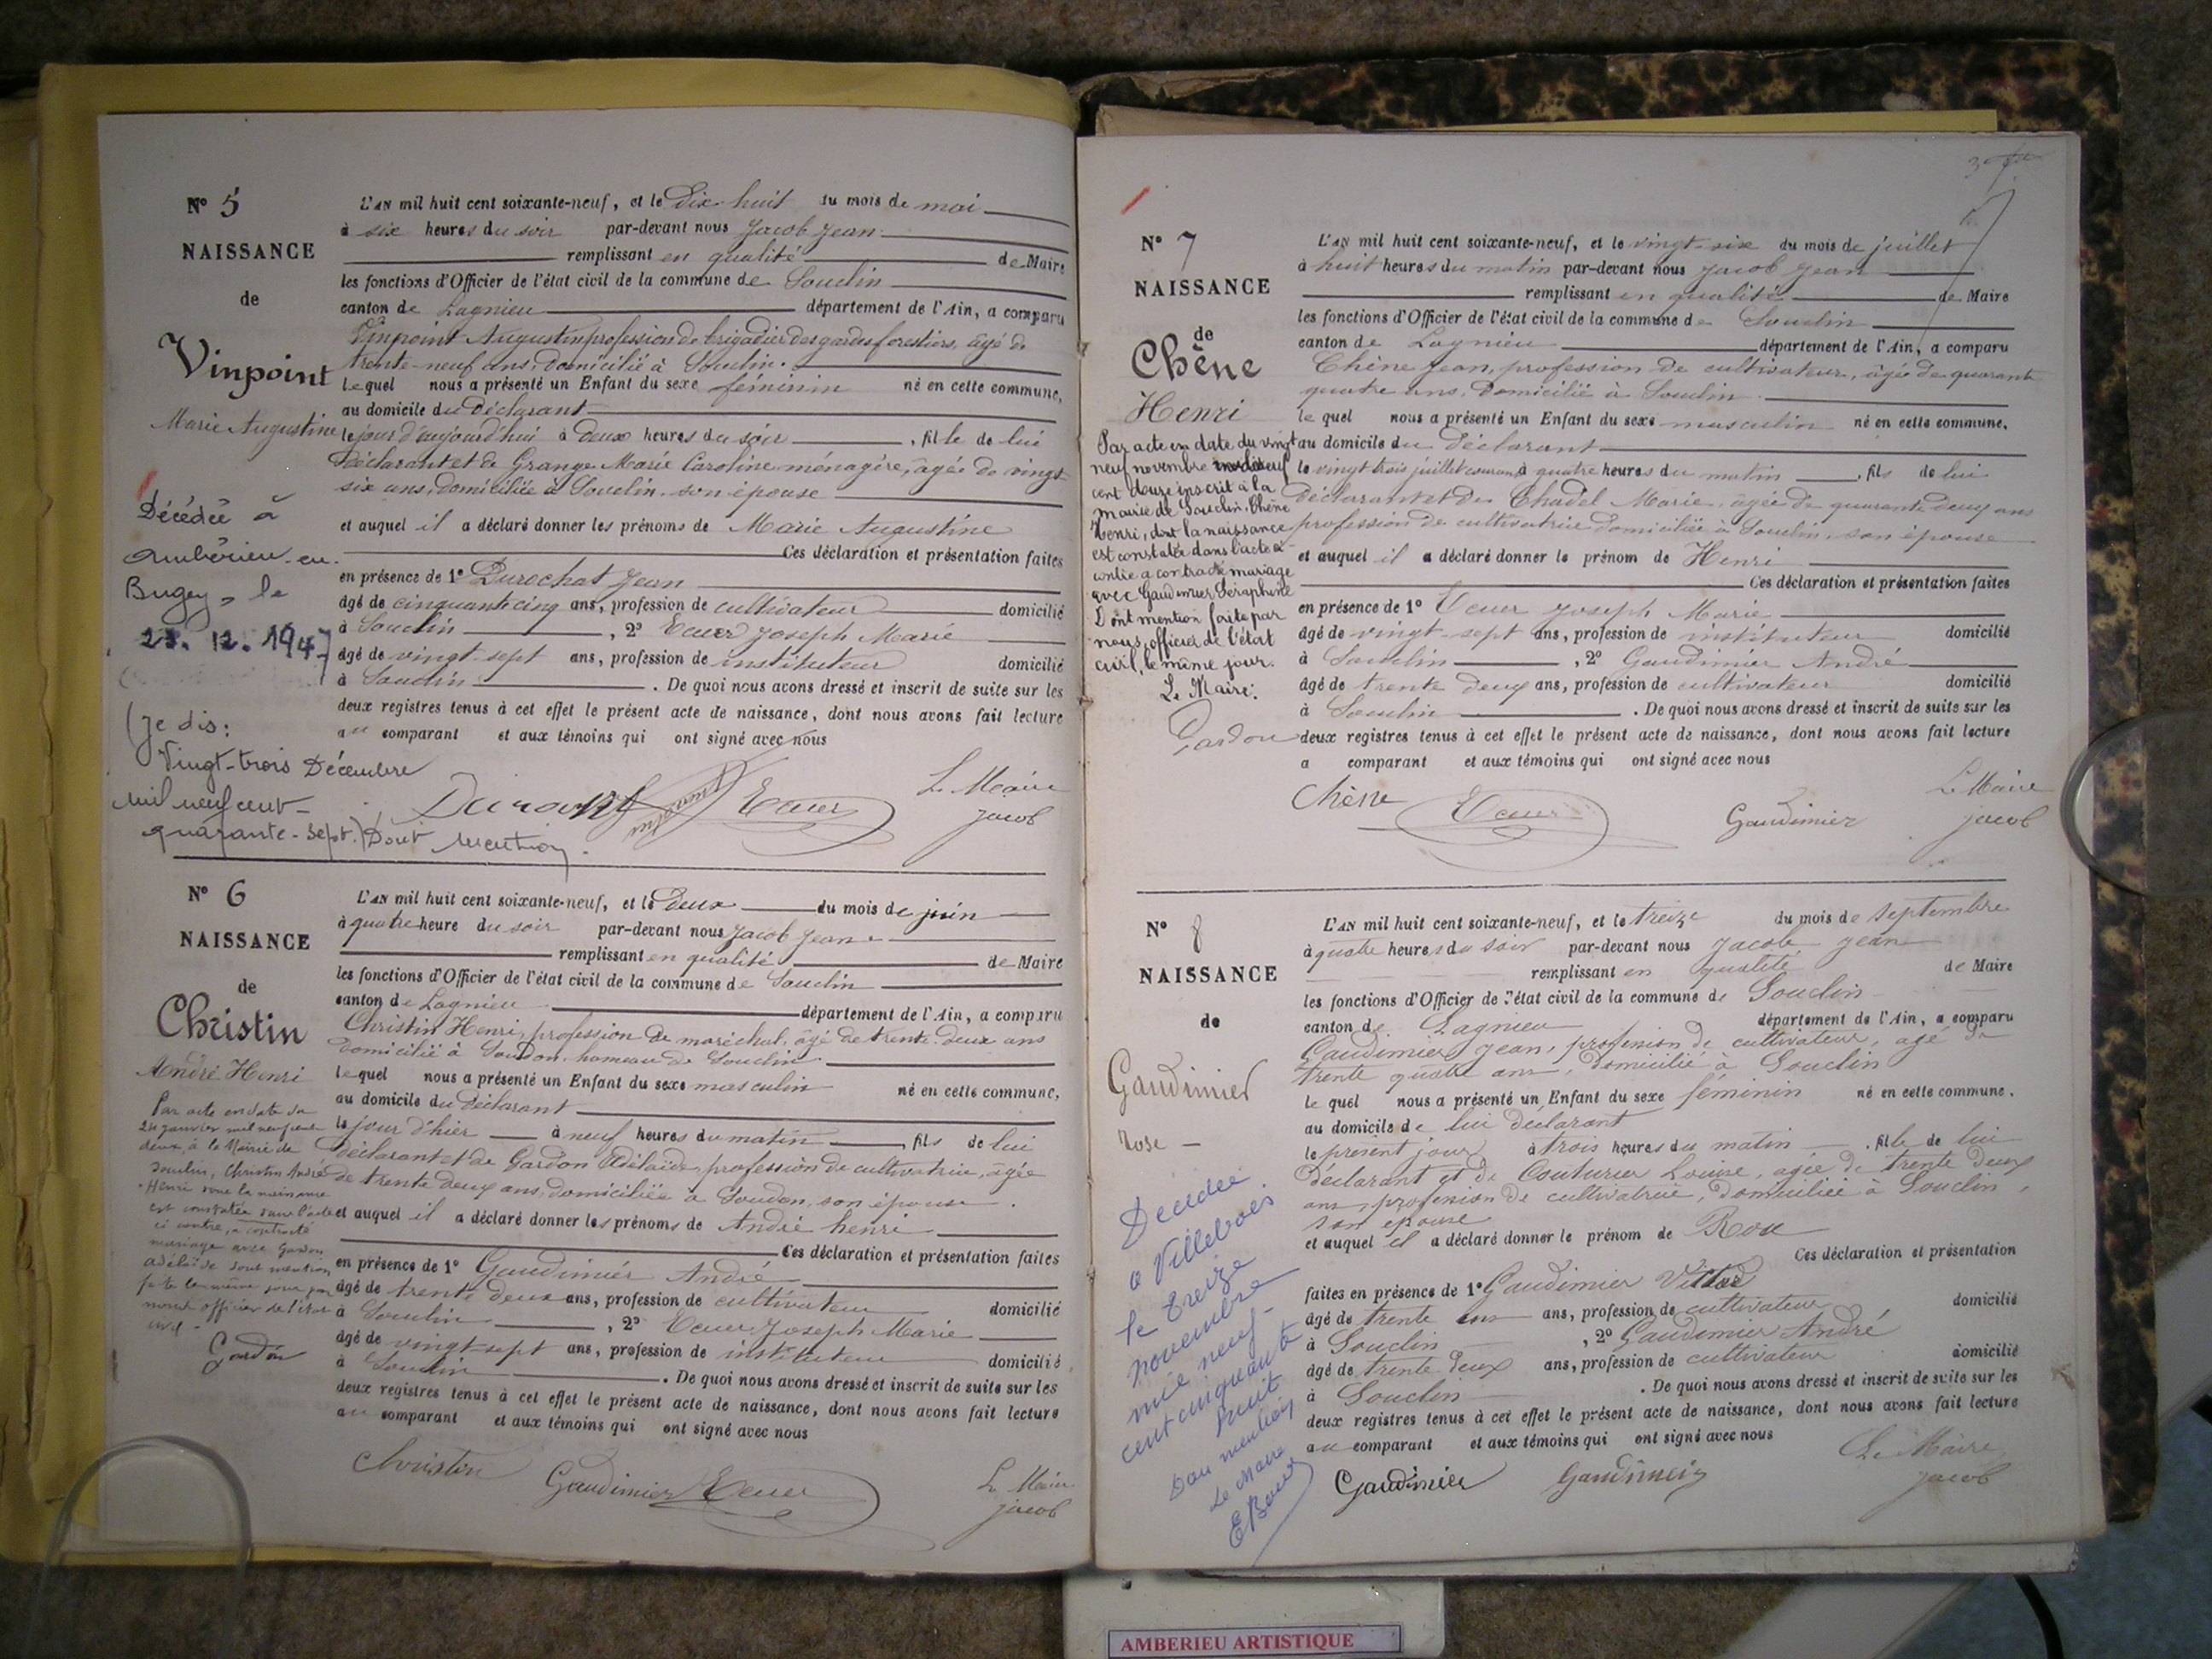 Nº 5
NAISSANCE
de
Vinpoint
Marie Augustine
Décédée à
Ambérieu-en-
Bugey, le
23. 12. 1947
(je dis:
Vingt-trois Décembre
mil neuf cent
quarante-sept.) Dont mention.
L'AN mil huit cent soixante-neuf, et le dix huit du mois de mai
à six heures du soir par-devant nous Jacob Jean
remplissant en qualité de Maire
les fonctions d'Officier de l'état civil de la commune de Souclin
canton de Lagnieu département de l'Ain, a comparu
Vinpoint Augustin profession de brigadier des gardes forestiers, âgé de
trente-neuf ans, domicilié à Souclin.
Lequel nous a présenté un Enfant du sexe féminin né en cette commune,
au domicile du Déclarant
le jour d'aujourd'hui à deux heures du soir, fille de lui
Déclarant et de Grange Marie Caroline ménagère, âgée de vingt
six ans, domiciliée à Souclin son épouse
et auquel il a déclaré donner les prénoms de Marie Augustine
Ces déclaration et présentation faites
en présence de 1º Durochat Jean
âgé de cinquante cinq ans, profession de cultivateur domicilié
à Souclin, 2º Joseph Marie
âgé de vingt-sept ans, profession de instituteur domicilié
à Souclin. De quoi nous avons dressé et inscrit de suite sur les
deux registres tenus à cet effet le présent acte de naissance, dont nous avons fait lecture
au comparant et aux témoins qui ont signé avec nous
Le Maire
Jacob
Nº 6
NAISSANCE
de
Christin
André Henri
Par acte en date du
24 janvier mil neuf cent
deux, à la Mairie de
Souclin, Christin André
Henri dont la naissance
est constatée dans l'acte
ci contre, a contracté
mariage avec Gardon
adélaïde dont mention
faite le même jour par
nous officier de l'état
civil -
Gardon
L'AN mil huit cent soixante-neuf, et le deux du mois de juin
à quatre heure du soir par-devant nous Jacob Jean
remplissant en qualité de Maire
les fonctions d'Officier de l'état civil de la commune de Souclin
canton de Lagnieu département de l'Ain, a comparu
Christin Henri, profession de maréchal, âgé de trente-deux ans
domicilié à Soudon hameau de Souclin
lequel nous a présenté un Enfant du sexe masculin né en cette commune,
au domicile du déclarant
le jour d'hier à neuf heures du matin, fils de lui
déclarant et de Gardon Adélaïde, profession de cultivatrice, âgée
de trente deux ans, domiciliée à Soudon, son épouse.
et auquel il a déclaré donner les prénoms de André henri
Ces déclaration et présentation faites
en présence de 1º Gaudimier André
âgé de trente deux ans, profession de cultivateur domicilié
à Souclin, 2º Joseph Marie
âgé de vingt-sept ans, profession de instituteur domicilié
à Souclin. De quoi nous avons dressé et inscrit de suite sur les
deux registres tenus à cet effet le présent acte de naissance, dont nous avons fait lecture
au comparant et aux témoins qui ont signé avec nous
Christin Gaudimier
Le Maire
Jacob
Nº 7
NAISSANCE
de
Chêne
Henri
Par acte en date du vingt
neuf novembre mil neuf
cent douze inscrit à la
mairie de Souclin, Chêne
Henri, dont la naissance
est constatée dans l'acte ci-
contre a contracté mariage
avec Gaudimier Séraphine
Dont mention faite par
nous, officier de l'état
civil, le même jour.
Le Maire:
Gardon
L'AN mil huit cent soixante-neuf, et le vingt-six du mois de juillet
à huit heures du matin par-devant nous Jacob Jean
remplissant en qualité de Maire
les fonctions d'Officier de l'état civil de la commune de Souclin
canton de Lagnieu département de l'Ain, a comparu
Chêne Jean, profession de cultivateur, âgé de quarante
quatre ans, domicilié à Souclin.
le quel nous a présenté un Enfant du sexe masculin né en cette commune,
au domicile du déclarant
le vingt trois juillet courant à quatre heures du matin, fils de lui
déclarant et de Chadel Marie, âgée de quarante deux ans
profession de cultivatrice domiciliée à Souclin, son épouse
et auquel il a déclaré donner le prénom de Henri
Ces déclaration et présentation faites
en présence de 1º Joseph Marie
âgé de vingt-sept ans, profession de instituteur domicilié
à Souclin, 2º Gaudimier André
âgé de trente deux ans, profession de cultivateur domicilié
à Souclin. De quoi nous avons dressé et inscrit de suite sur les
deux registres tenus à cet effet le présent acte de naissance, dont nous avons fait lecture
a comparant et aux témoins qui ont signé avec nous
Chêne Gaudimier
Le Maire
Jacob
Nº 8
NAISSANCE
de
Gaudimier
Rose
Décédée
à Villebois
le treize
novembre
mil neuf-
cent cinquante
huit
Dont mention
Le Maire
L'AN mil huit cent soixante-neuf, et le treize du mois de septembre
à quatre heures du soir par-devant nous Jacob Jean
remplissant en qualité de Maire
les fonctions d'Officier de l'état civil de la commune de Souclin
canton de Lagnieu département de l'Ain, a comparu
Gaudimier Jean, profession de cultivateur, âgé de
trente quatre ans, domicilié à Souclin
le quel nous a présenté un Enfant du sexe féminin né en cette commune.
au domicile de lui déclarant
le présent jour à trois heures du matin, fille de lui
déclarant et de Couturier Louise, âgée de trente deux
ans, profession de cultivatrice, domiciliée à Souclin,
son épouse
et auquel il a déclaré donner le prénom de Rose
Ces déclaration et présentation
faites en présence de 1º Gaudimier Victor
âgé de trente ans, profession de cultivateur domicilié
à Souclin, 2º Gaudimier André
âgé de trente deux ans, profession de cultivateur domicilié
à Souclin. De quoi nous avons dressé et inscrit de suite sur les
deux registres tenus à cet effet le présent acte de naissance, dont nous avons fait lecture
au comparant et aux témoins qui ont signé avec nous
Gaudimier Gaudimier
Le Maire
Jacob
AMBERIEU ARTISTIQUE